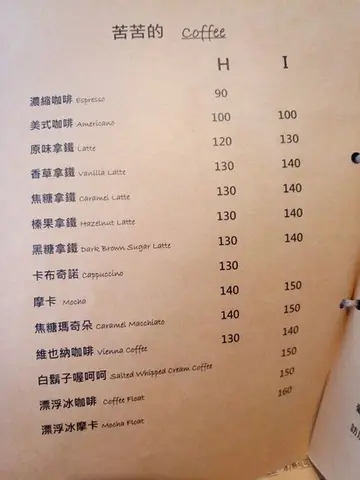 苦苦的 Coffee
H I
濃縮咖啡 Espresso 90
美式咖啡 Americano 100 100
原味拿鐵 Latte 120 130
香草拿鐵 Vanilla Latte 130 140
焦糖拿鐵 Caramel Latte 130 140
榛果拿鐵 Hazelnut Latte 130 140
黑糖拿鐵 Dark Brown Sugar Latte 130 140
卡布奇諾 Cappuccino 130
摩卡 Mocha 140 150
焦糖瑪奇朵 Caramel Macchiato 140 150
維也納咖啡 Vienna Coffee 130 140
白鬍子喔呵呵 Salted Whipped Cream Coffee 150
漂浮冰咖啡 Coffee Float 150
漂浮冰摩卡 Mocha Float 160